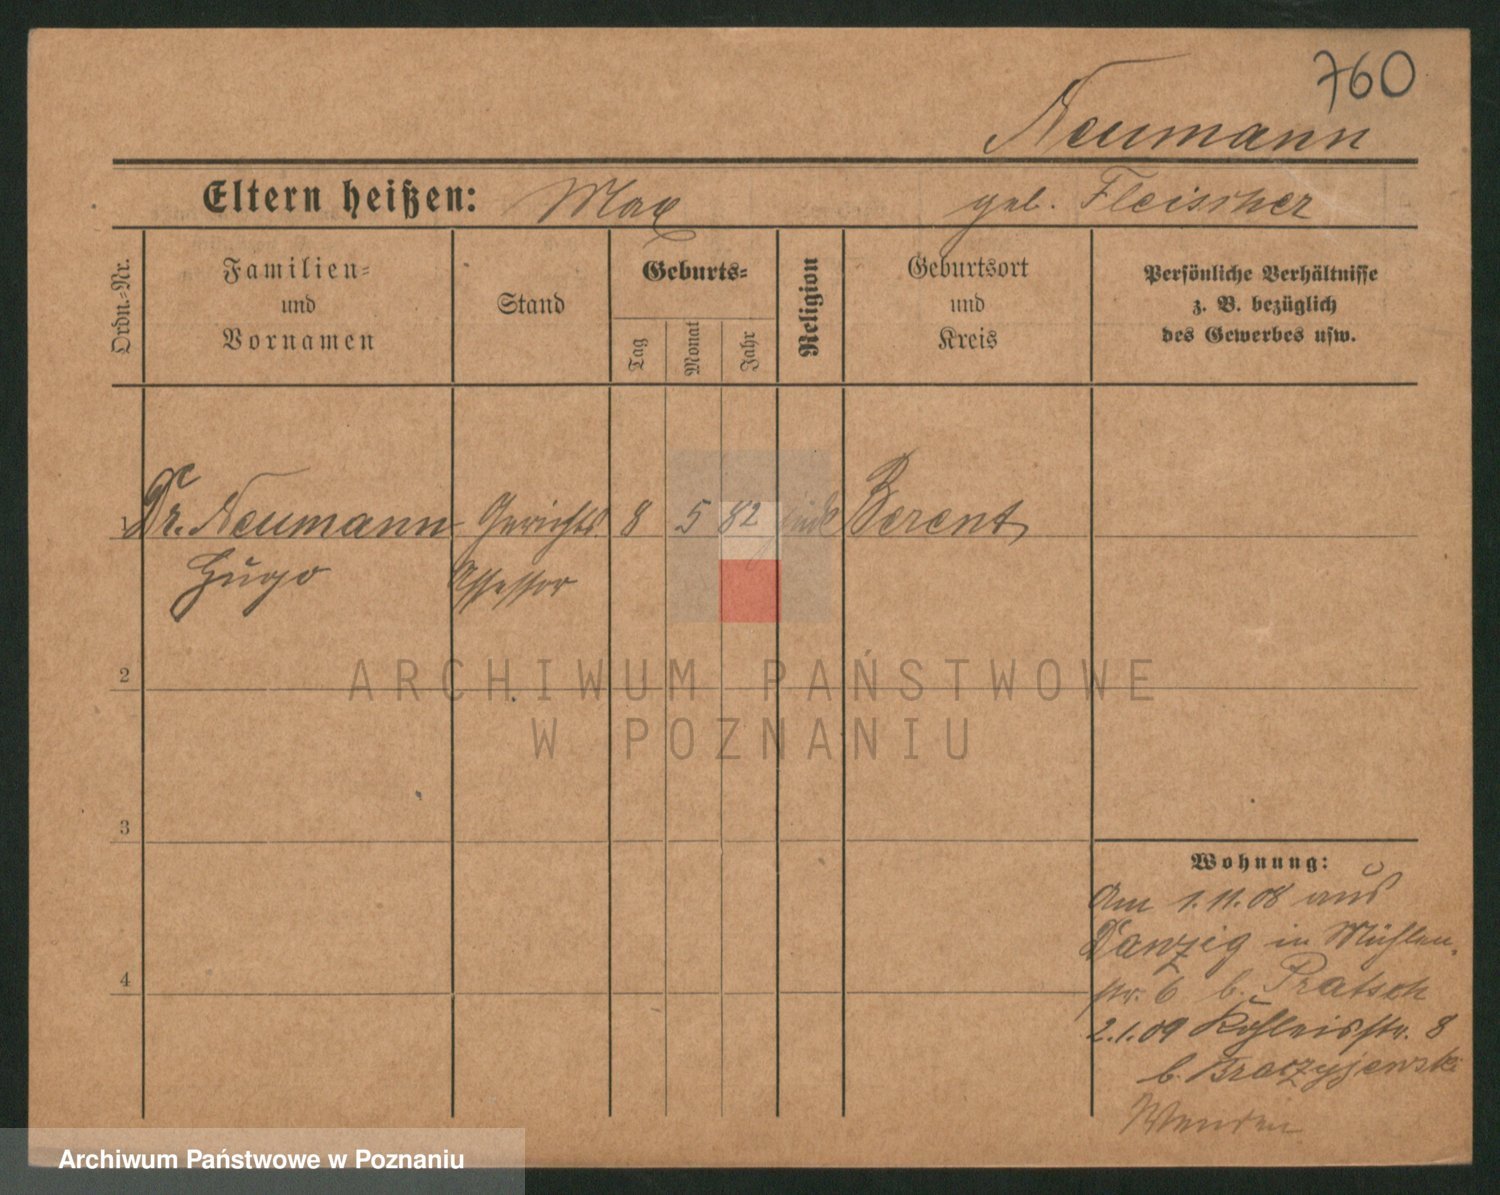 760
Neumann
Eltern heißen: Max geb. Fleischer
Ordn.-Nr.
Familien-
und
Vornamen
Stand
Geburts-
Tag
Monat
Jahr
Religion
Geburtsort
und
Kreis
Persönliche Verhältnisse
z. B. bezüglich
des Gewerbes usw.
1 Dr. Neumann Gerichts 8 5 82 jüd Berent
Hugo Assessor
2
3
4
Wohnung:
Am 1.11.08 aus
Danzig in Mühlen-
str. 6 b. Pratsch
2.1.09 str. 8
b.
Wenden
ARCHIWUM PAŃSTWOWE
W POZNANIU
Archiwum Państwowe w Poznaniu